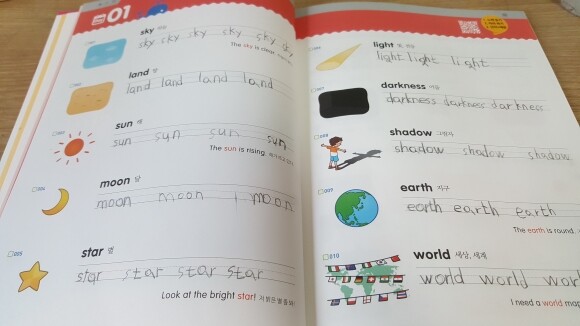 01
sky
sky sky sky sky sky sky
The sky is clear.
land 땅
land land land land
sun 해
sun sun sun sun
The sun is rising.
006
moon 달
moon moon moon
005
star 별
star star star star
Look at the bright star! 저 밝은 별 좀 봐!
light 빛
light light light
darkness 어둠
darkness darkness darkness
008
shadow 그림자
shadow shadow shadow
009
earth 지구
earth earth earth
The earth is round.
010
world 세상, 세계
world world wor
I need a world map